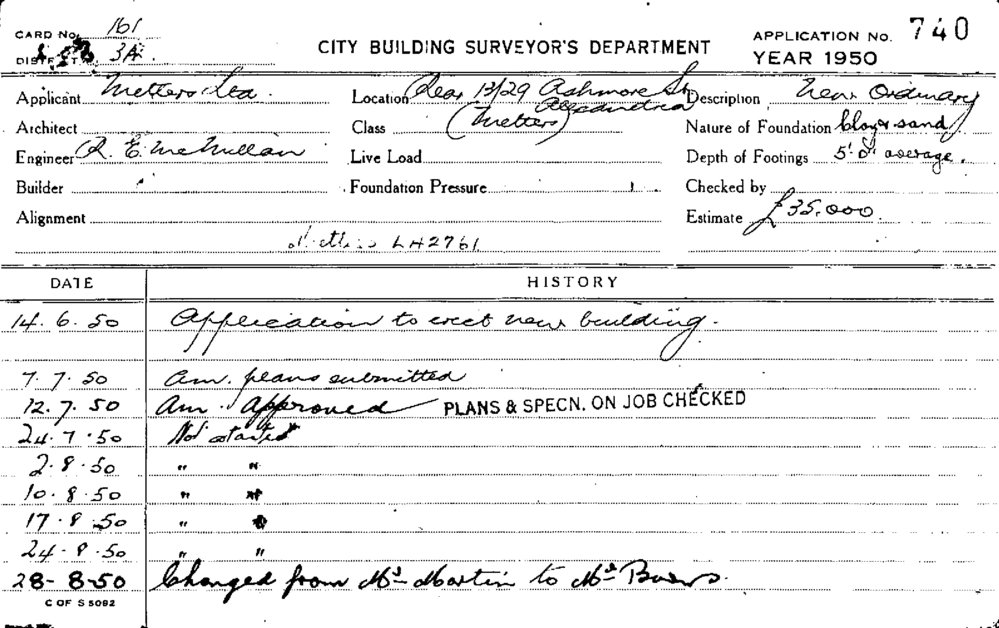 CARD No. 161
DISTRICT 3A.
CITY BUILDING SURVEYOR'S DEPARTMENT
APPLICATION No. 740
YEAR 1950
Applicant Metters Ltd.
Location Rear 13/29 Ashmore St
Alexandria
Description New Ordinary
Architect
Class (Metters)
Nature of Foundation Clay & sand
Engineer R. E. McMillan
Live Load
Depth of Footings 5'.0" average.
Builder
Foundation Pressure
Checked by
Alignment
Estimate £35,000
Metters LA2761
DATE HISTORY
14. 6. 50 Application to erect new building.
7. 7. 50 Am. plans submitted
12. 7. 50 Am. Approved PLANS & SPECN. ON JOB CHECKED
24. 7. 50 Not started
2. 8. 50 " "
10. 8. 50 " "
17. 8. 50 " "
24. 8. 50 " "
28-8-50 Changed from Mr Martin to Mr
C OF S 5092